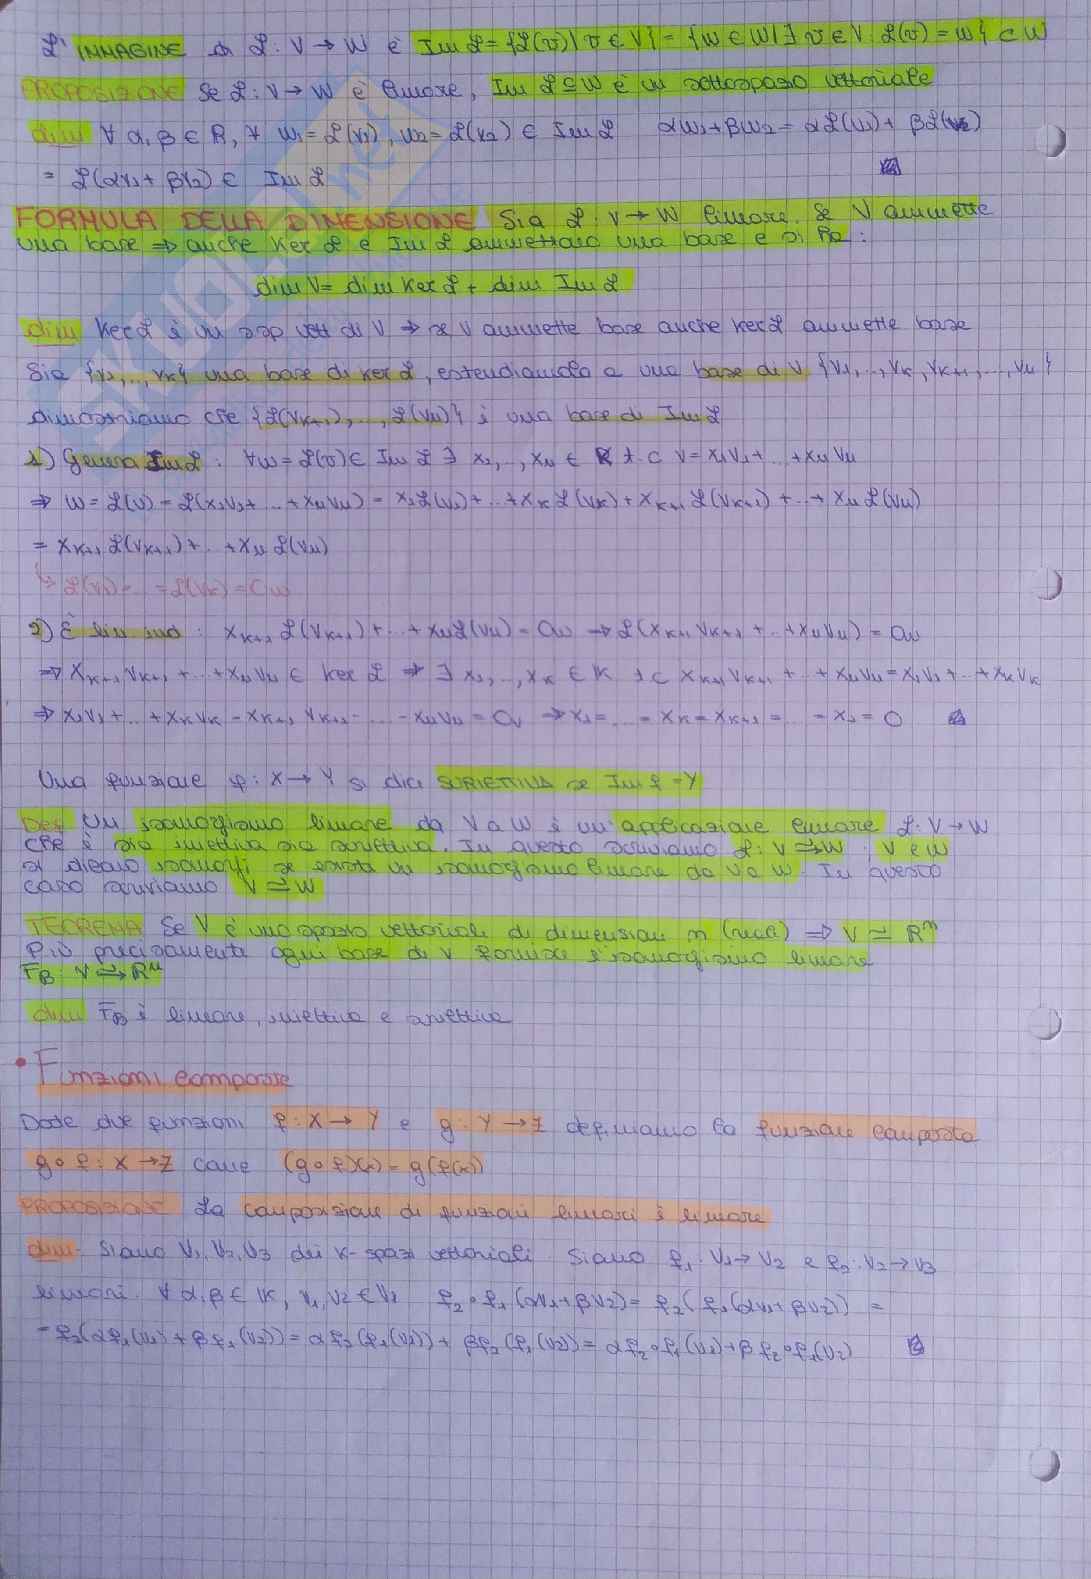 L'IMMAGINE di L: V → W è Im L = {L(v) | v ∈ V} = {w ∈ W | ∃ v ∈ V: L(v) = w} ⊂ W
PROPOSIZIONE Se L: V → W è lineare, Im L ⊆ W è un sottospazio vettoriale
dim ∀ α, β ∈ R, ∀ w₁ = L(v₁), w₂ = L(v₂) ∈ Im L αw₁ + βw₂ = αL(v₁) + βL(v₂)
= L(αv₁ + βv₂) ∈ Im L
FORMULA DELLA DIMENSIONE Sia L: V → W lineare. Se V ammette
una base ⇒ anche Ker L e Im L ammettono una base e si ha:
dim V = dim Ker L + dim Im L
dim Ker L è un ssp vett di V ⇒ se V ammette base anche Ker L ammette base
Sia {v₁, .., vₖ} una base di Ker L, estendiamola a una base di V {v₁, .., vₖ, vₖ₊₁, ..., vₙ}
dimostriamo che {L(vₖ₊₁), .., L(vₙ)} è una base di Im L
1) Genera Im L: ∀w = L(v) ∈ Im L ∃ x₁, .., xₙ ∈ K t.c v = x₁v₁ + .. + xₙvₙ
⇒ w = L(v) = L(x₁v₁ + .. + xₙvₙ) = x₁L(v₁) + .. + xₖL(vₖ) + xₖ₊₁L(vₖ₊₁) + .. + xₙL(vₙ)
= xₖ₊₁L(vₖ₊₁) + .. + xₙL(vₙ)
↳ L(v₁) = .. = L(vₖ) = 0w
2) È lin ind: xₖ₊₁L(vₖ₊₁) + .. + xₙL(vₙ) = 0w ⇒ L(xₖ₊₁vₖ₊₁ + .. + xₙvₙ) = 0w
⇒ xₖ₊₁vₖ₊₁ + .. + xₙvₙ ∈ Ker L ⇒ ∃ x₁, .., xₖ ∈ K t.c xₖ₊₁vₖ₊₁ + .. + xₙvₙ = x₁v₁ + .. + xₖvₖ
⇒ x₁v₁ + .. + xₖvₖ - xₖ₊₁vₖ₊₁ - ... - xₙvₙ = 0v ⇒ x₁ = ... = xₖ = xₖ₊₁ = ... = x₁ = 0
Una funzione φ: X → Y si dice SURIETTIVA se Im f = Y
Def Un isomorfismo lineare da V a W è un'applicazione lineare L: V → W
che è sia iniettiva sia suriettiva. In questo scriviamo L: V ⥲ W. V e W
si dicono isomorfi se esiste un isomorfismo lineare da V a W. In questo
caso scriviamo V ≃ W
TEOREMA Se V è uno spazio vettoriale di dimensioni n (reale) ⇒ V ≃ Rⁿ
Più precisamente ogni base di V fornisce l'isomorfismo lineare
F_B: V ⥲ Rⁿ
dim F_B è lineare, iniettiva e suriettiva
• Funzioni composte
Date due funzioni f: X → Y e g: Y → Z definiamo la funzione composta
g∘f: X → Z come (g∘f)(x) = g(f(x))
PROPOSIZIONE La composizione di funzioni lineari è lineare
dim. Siano V₁, V₂, V₃ dei K-spazi vettoriali Siano f₁: V₁ → V₂ e f₂: V₂ → V₃
lineari. ∀ α, β ∈ K, v₁, v₂ ∈ V₁ f₂∘f₁(αv₁ + βv₂) = f₂(f₁(αv₁ + βv₂)) =
= f₂(αf₁(v₁) + βf₁(v₂)) = αf₂(f₁(v₁)) + βf₂(f₁(v₂)) = αf₂∘f₁(v₁) + βf₂∘f₁(v₂)
SKUOLA.net